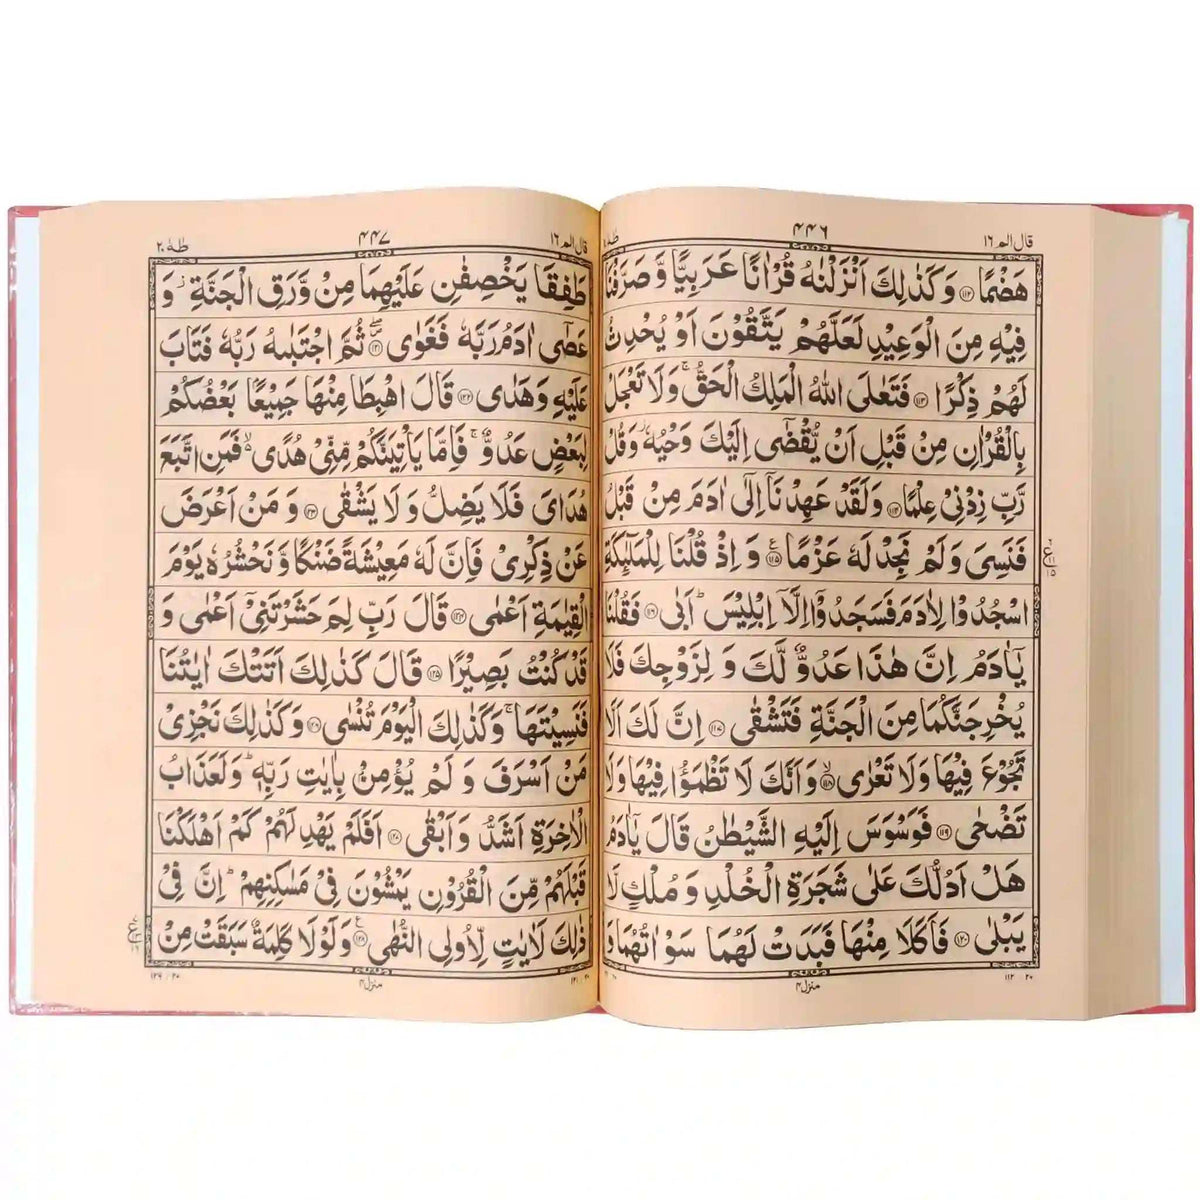 قال الم ١٦
٤٤٦
طٰهٰ
هَضْمًا ﴿١١٢﴾ وَكَذٰلِكَ اَنْزَلْنٰهُ قُرْاٰنًا عَرَبِيًّا وَّ صَرَّفْنَا
فِيْهِ مِنَ الْوَعِيْدِ لَعَلَّهُمْ يَتَّقُوْنَ اَوْ يُحْدِثُ
لَهُمْ ذِكْرًا ﴿١١٣﴾ فَتَعٰلَى اللّٰهُ الْمَلِكُ الْحَقُّ ۚ وَلَا تَعْجَلْ
بِالْقُرْاٰنِ مِنْ قَبْلِ اَنْ يُّقْضٰٓى اِلَيْكَ وَحْيُهٗ ؗ وَقُلْ
رَّبِّ زِدْنِيْ عِلْمًا ﴿١١٤﴾ وَلَقَدْ عَهِدْنَاۤ اِلٰۤى اٰدَمَ مِنْ قَبْلُ
فَنَسِيَ وَلَمْ نَجِدْ لَهٗ عَزْمًا ﴿١١٥﴾ۧ وَ اِذْ قُلْنَا لِلْمَلٰٓئِكَةِ
اسْجُدُوْا لِاٰدَمَ فَسَجَدُوْۤا اِلَّاۤ اِبْلِيْسَ ؕ اَبٰى ﴿١١٦﴾ فَقُلْنَا
يٰۤاٰدَمُ اِنَّ هٰذَا عَدُوٌّ لَّكَ وَ لِزَوْجِكَ فَلَا
يُخْرِجَنَّكُمَا مِنَ الْجَنَّةِ فَتَشْقٰى ﴿١١٧﴾ اِنَّ لَكَ اَلَّا
تَجُوْعَ فِيْهَا وَلَا تَعْرٰى ﴿١١٨﴾ۙ وَاَنَّكَ لَا تَظْمَؤُا فِيْهَا وَلَا
تَضْحٰى ﴿١١٩﴾ فَوَسْوَسَ اِلَيْهِ الشَّيْطٰنُ قَالَ يٰۤاٰدَمُ
هَلْ اَدُلُّكَ عَلٰى شَجَرَةِ الْخُلْدِ وَ مُلْكٍ لَّا
يَبْلٰى ﴿١٢٠﴾ فَاَكَلَا مِنْهَا فَبَدَتْ لَهُمَا سَوْاٰتُهُمَا وَ
منزل ٤
قال الم ١٦
٤٤٧
طٰهٰ ٢٠
طَفِقَا يَخْصِفٰنِ عَلَيْهِمَا مِنْ وَّرَقِ الْجَنَّةِ ؗ وَ
عَصٰۤى اٰدَمُ رَبَّهٗ فَغَوٰى ﴿١٢١﴾۪ۖ ثُمَّ اجْتَبٰىهُ رَبُّهٗ فَتَابَ
عَلَيْهِ وَهَدٰى ﴿١٢٢﴾ قَالَ اهْبِطَا مِنْهَا جَمِيْعًۢا بَعْضُكُمْ
لِبَعْضٍ عَدُوٌّ ۚ فَاِمَّا يَاْتِيَنَّكُمْ مِّنِّيْ هُدًى ۙ۬ فَمَنِ اتَّبَعَ
هُدَايَ فَلَا يَضِلُّ وَ لَا يَشْقٰى ﴿١٢٣﴾ وَ مَنْ اَعْرَضَ
عَنْ ذِكْرِيْ فَاِنَّ لَهٗ مَعِيْشَةً ضَنْكًا وَّ نَحْشُرُهٗ يَوْمَ
الْقِيٰمَةِ اَعْمٰى ﴿١٢٤﴾ قَالَ رَبِّ لِمَ حَشَرْتَنِيْۤ اَعْمٰى وَ
قَدْ كُنْتُ بَصِيْرًا ﴿١٢٥﴾ قَالَ كَذٰلِكَ اَتَتْكَ اٰيٰتُنَا
فَنَسِيْتَهَا ۚ وَكَذٰلِكَ الْيَوْمَ تُنْسٰى ﴿١٢٦﴾ وَ كَذٰلِكَ نَجْزِيْ
مَنْ اَسْرَفَ وَ لَمْ يُؤْمِنْۢ بِاٰيٰتِ رَبِّهٖ ؕ وَ لَعَذَابُ
الْاٰخِرَةِ اَشَدُّ وَ اَبْقٰى ﴿١٢٧﴾ اَفَلَمْ يَهْدِ لَهُمْ كَمْ اَهْلَكْنَا
قَبْلَهُمْ مِّنَ الْقُرُوْنِ يَمْشُوْنَ فِيْ مَسٰكِنِهِمْ ؕ اِنَّ فِيْ
ذٰلِكَ لَاٰيٰتٍ لِّاُولِي النُّهٰى ﴿١٢٨﴾ۧ وَلَوْلَا كَلِمَةٌ سَبَقَتْ مِنْ
منزل ٤